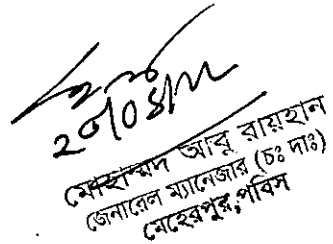 ২৭/০৪/২২
মোহাম্মদ আবু রায়হান
জেনারেল ম্যানেজার (চঃ দাঃ)
মেহেরপুর, পবিস